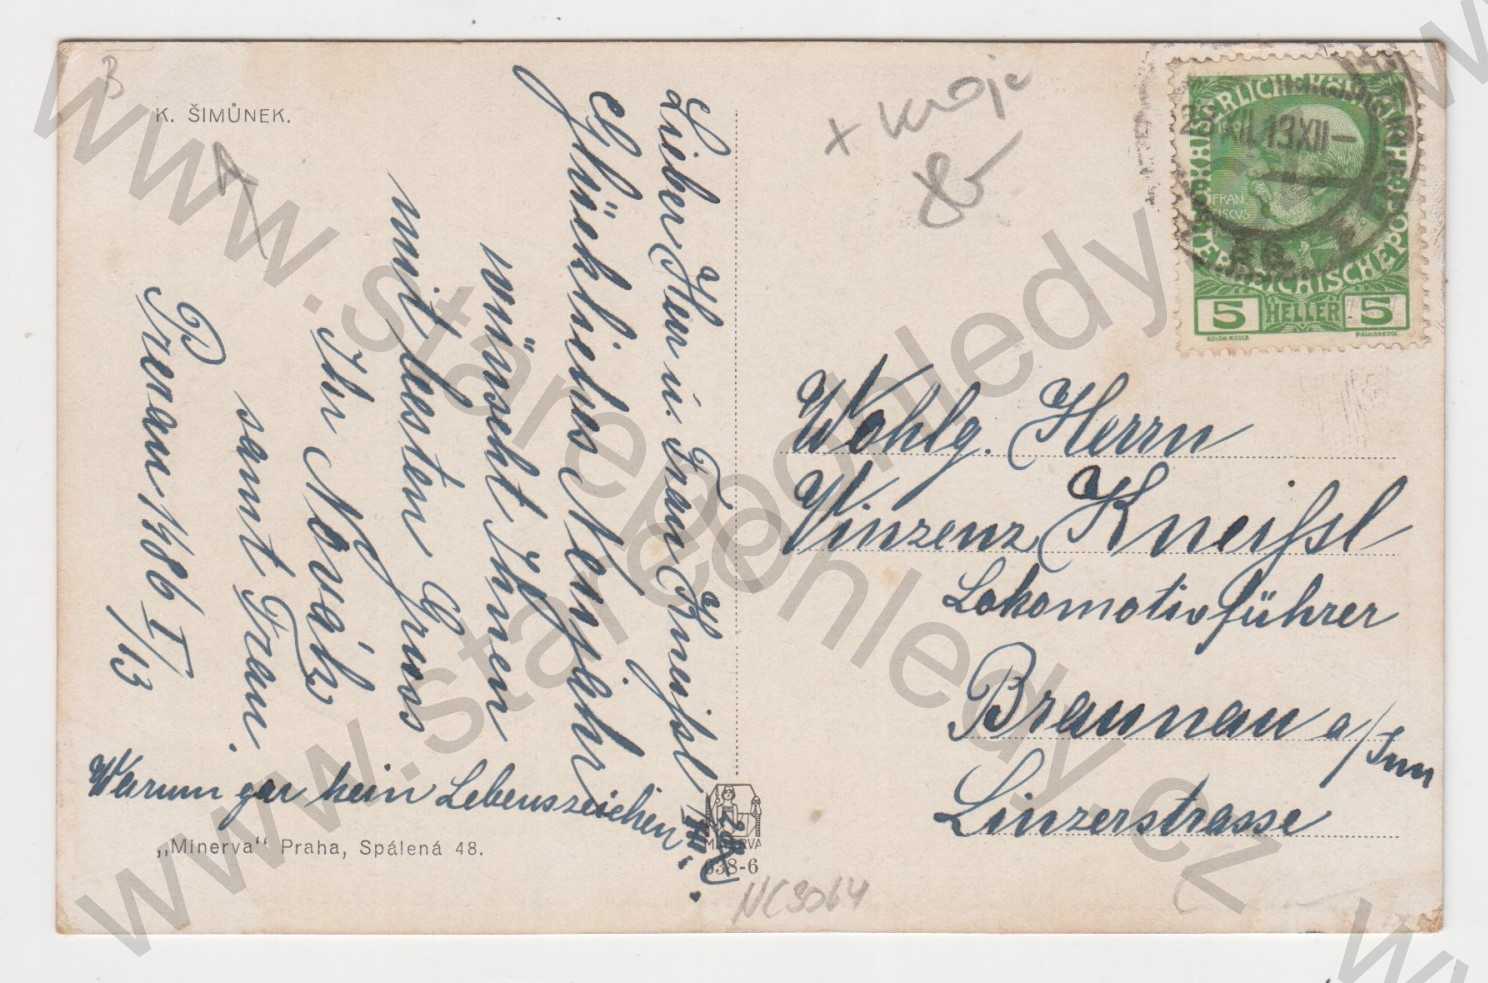 K. ŠIMŮNEK.
Lieber Herr u. Frau Kneißl
Glückliches Neujahr
wünscht Ihnen
mit besten Gruss
Ihr Novák
samt Frau.
Prerau 1486 I/13
Warum gar kein Lebenszeichen
„Minerva" Praha, Spálená 48.
MINERVA
638-6
NC3064
+ kroje
80-
KAISERLICHE KÖNIGLICHE
ÖSTERREICHISCHE POST
FRAN CISCUS
5 HELLER 5
XII. 13 XII-
Wohlg. Herrn
Vinzenz Kneißl
Lokomotivführer
Braunau a/Inn
Linzerstrasse
www.starepohledy.cz
www.starepohledy.cz